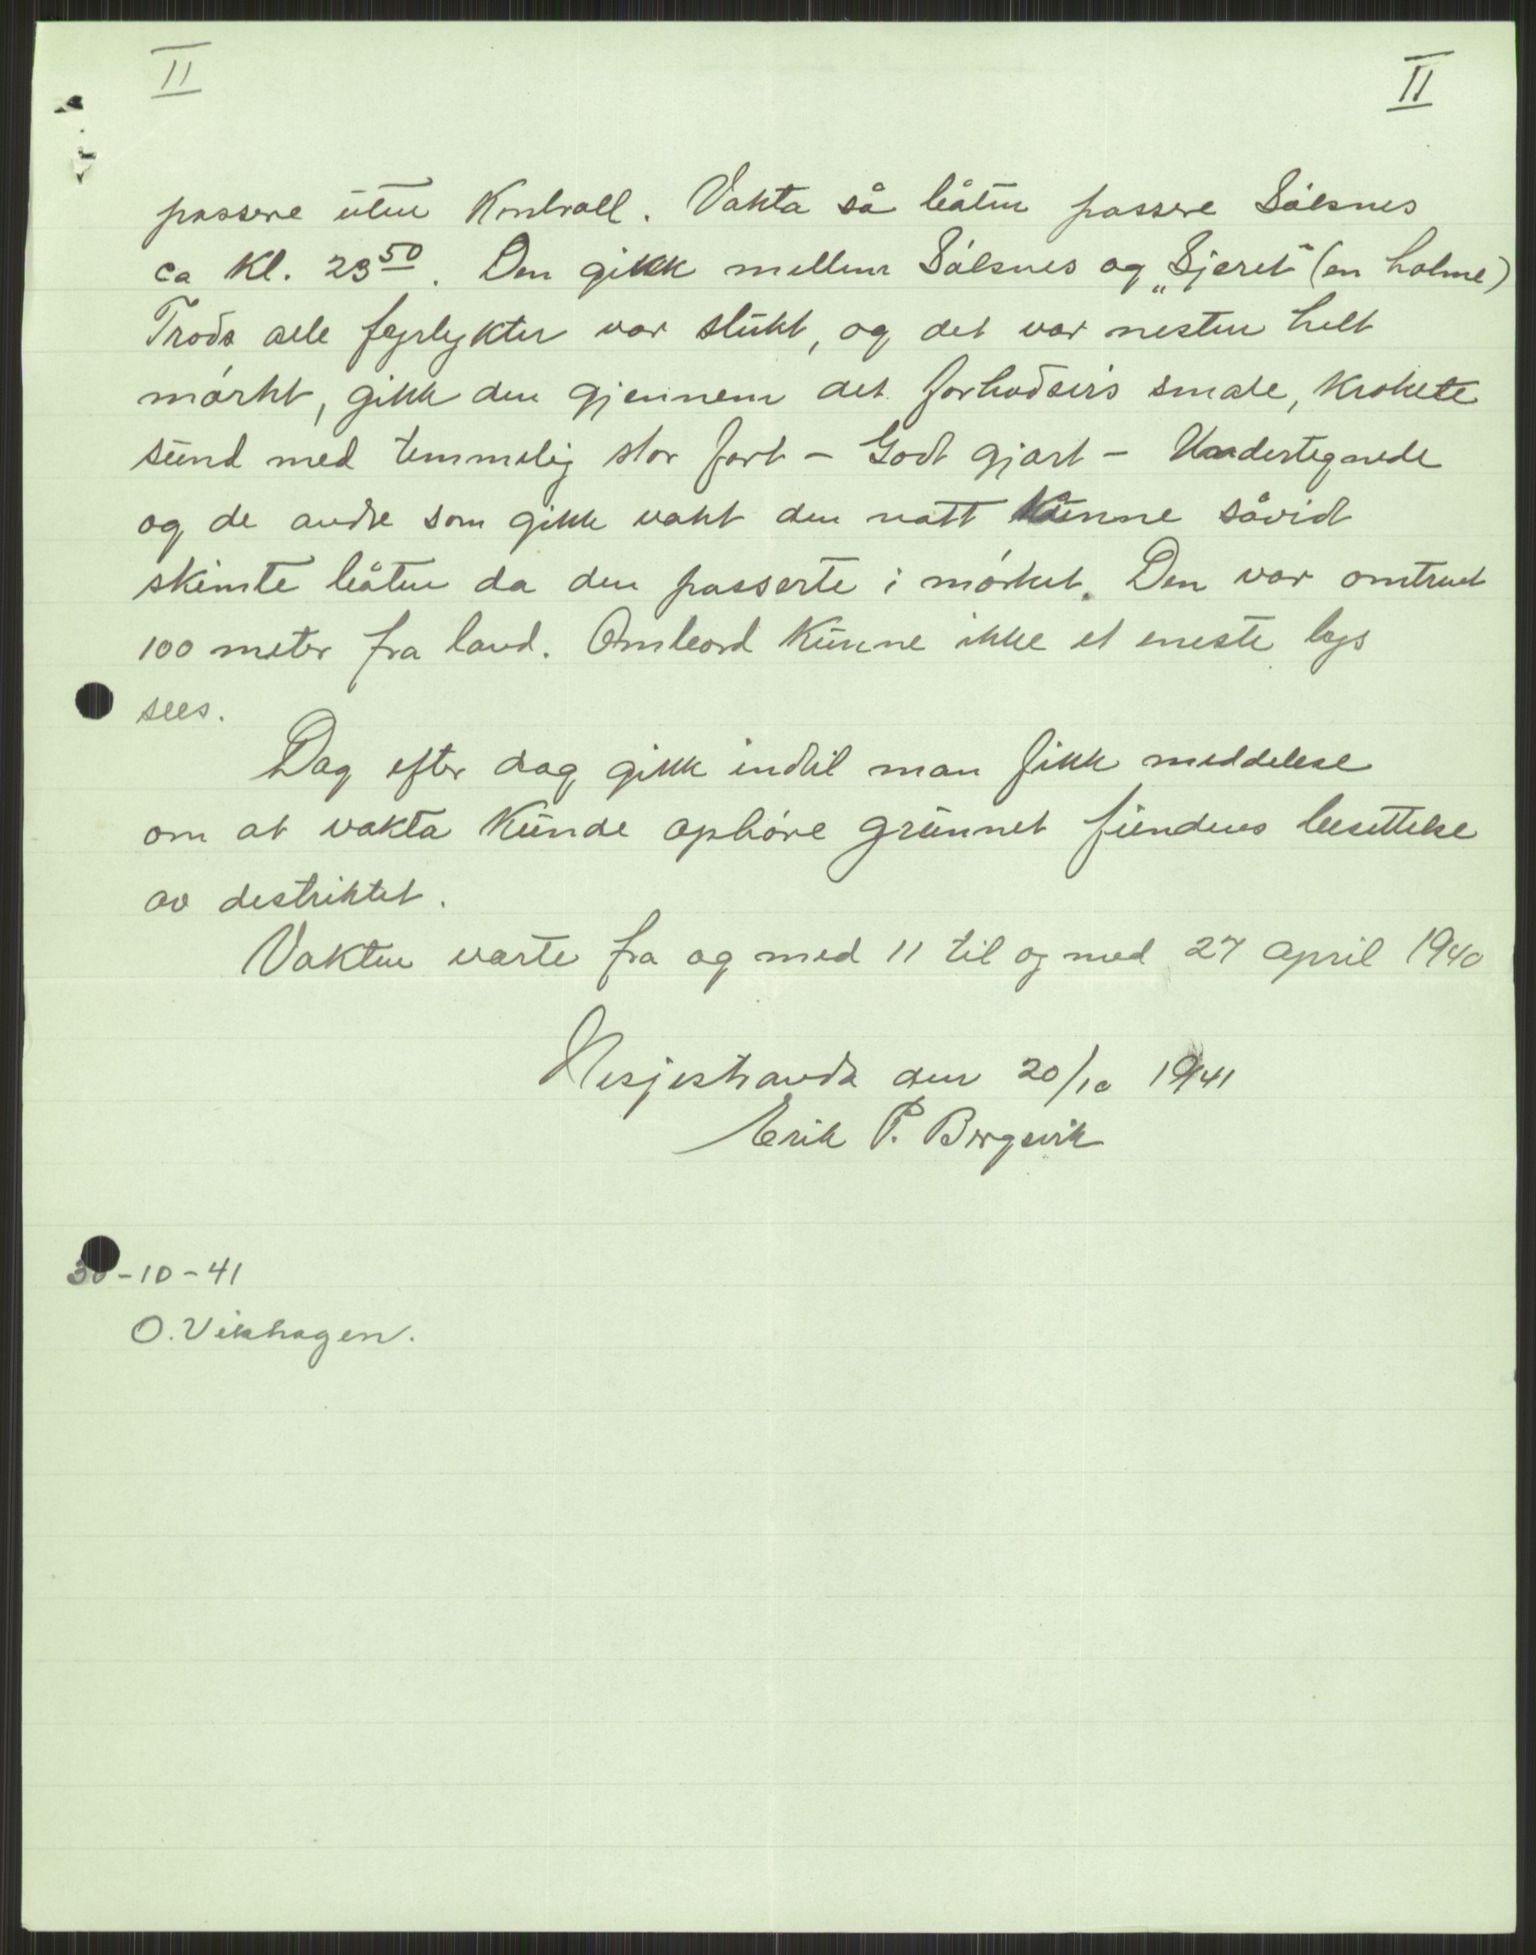 II II
passere uten Kontroll. Vakta så båten passere Sölsnes
ca Kl. 23 50. Den gikk mellem Sölsnes og „Sjeret" (en holme)
Trods alle fyrlykter var slukt, og det var nesten helt
mörkt, gikk den gjennem det forholdsvis smale, krokete
sund med temmelig stor fart - Godt gjort - Undertegnede
og de andre som gikk vakt den natt kunne såvidt
skimte båten da den passerte i mörket. Den var omtrent
100 meter fra land. Ombord kunne ikke et eneste lys
sees.
Dag efter dag gikk indtil man fikk meddelelse
om at vakta kunde ophöre grunnet fiendens besettelse
av destriktet.
Vakten varte fra og med 11 til og med 27 april 1940
Nesjestranda den 20/10 1941
Erik P. Bergsvik
30-10-41
O. Vikhagen.